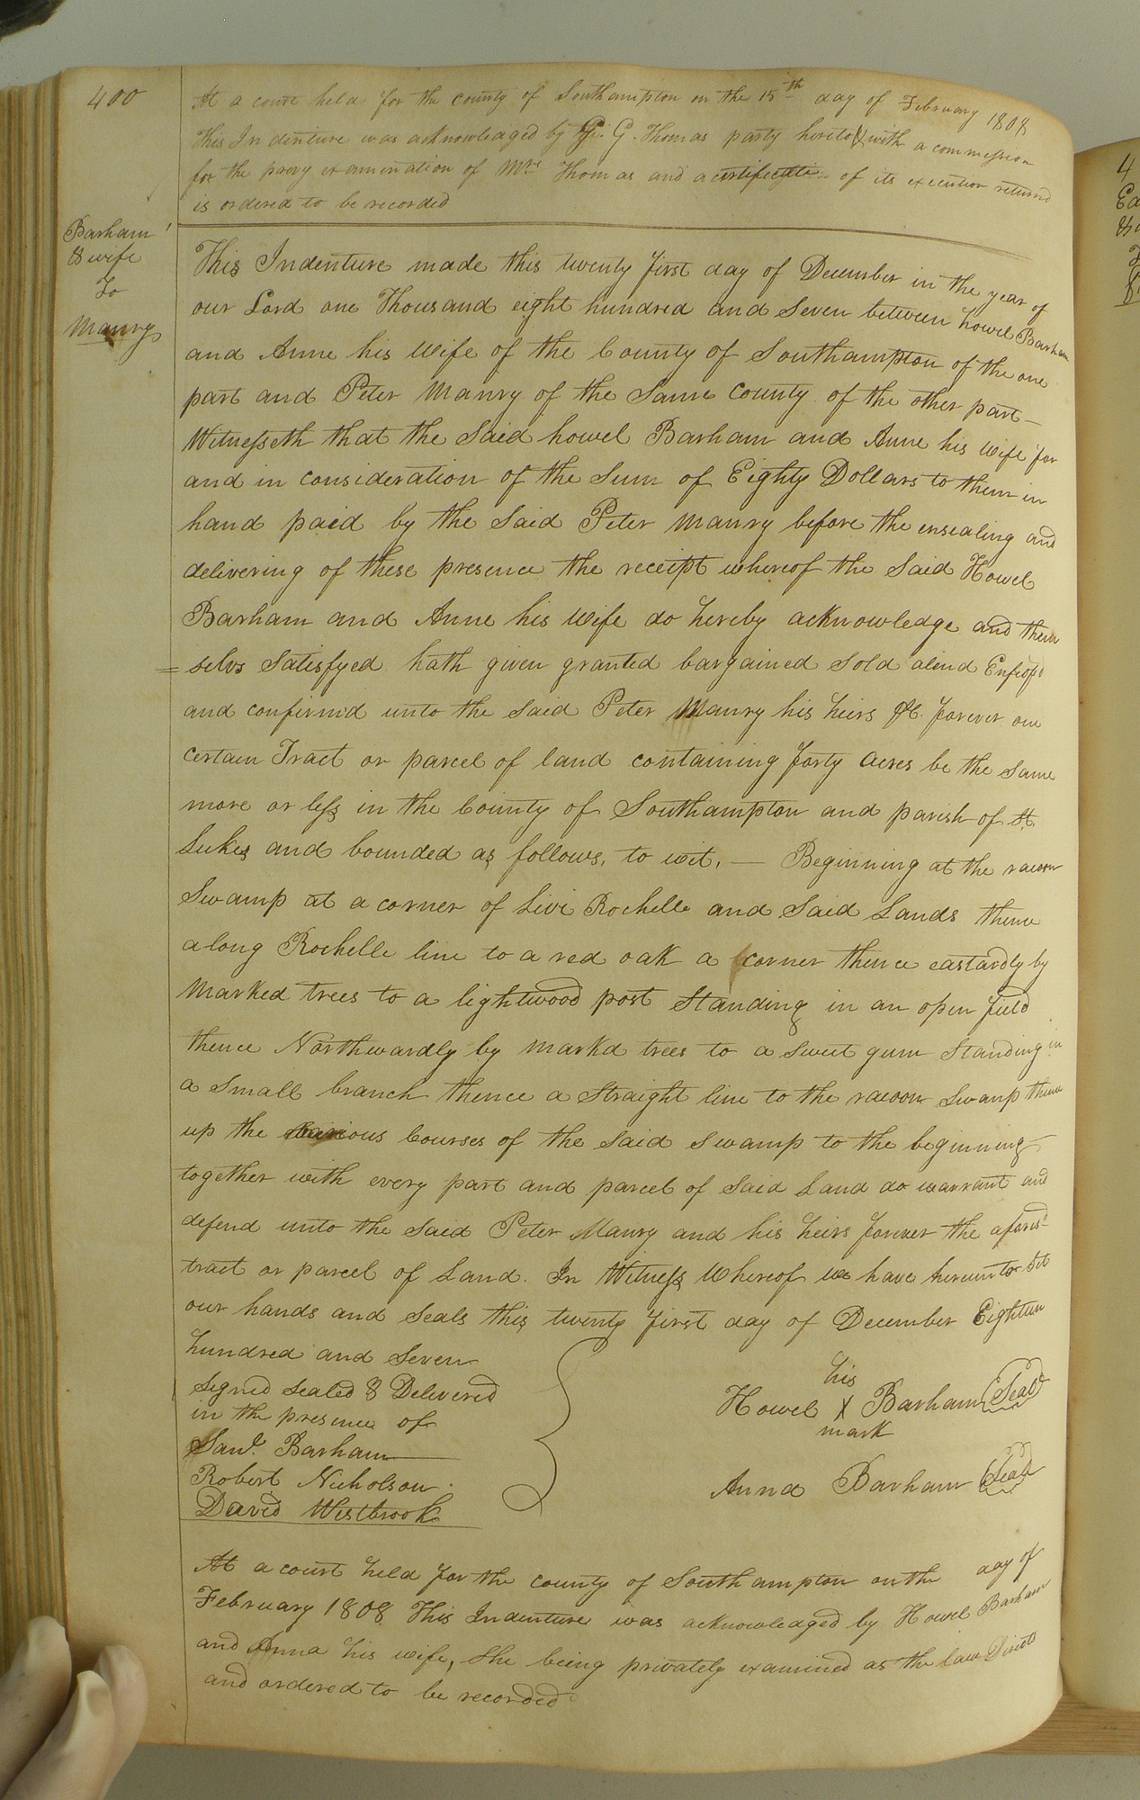 400
At a court held for the county of Southampton on the 15th day of February 1808
This Indenture was acknowledged by G. Thomas party hereto & with a commission
for the privy examination of Mrs Thomas and a certificate of its execution returned
is ordered to be recorded
Barham
& wife
To
Manry
This Indenture made this twenty first day of December in the year of
our Lord one Thousand eight hundred and Seven between howel Barham
and Anne his Wife of the County of Southampton of the one
part and Peter Manry of the Same County of the other part
Witnesseth that the Said howel Barham and Anne his wife for
and in consideration of the Sum of Eighty Dollars to them in
hand paid by the Said Peter Manry before the ensealing and
delivering of these presence the receipt whereof the Said Howel
Barham and Anne his Wife do hereby acknowledge and them
= selvs Satisfyed hath given granted bargained Sold aliend Enfeoffd
and confirm'd unto the Said Peter Manry his heirs &c. forever one
certain Tract or parcel of land containing forty acres be the Same
more or less in the County of Southampton and parish of St.
Lukes and bounded as follows, to wit, — Beginning at the racoon
Swamp at a corner of Livi Rochelle and Said Lands thence
along Rochelle line to a red oak a corner thence eastardly by
Marked trees to a lightwood post Standing in an open field
thence Northwardly by markd trees to a sweet gum Standing in
a Small branch thence a Straight line to the racoon Swamp thence
up the various Courses of the Said Swamp to the beginning
together with every part and parcel of Said Land do warrant and
defend unto the Said Peter Manry and his heirs forever the aforesd
tract or parcel of Land. In Witness Whereof we have hereunto Set
our hands and Seals this twenty first day of December Eighteen
hundred and Seven
Signed Sealed & Delivered
in the presence of
Saml. Barham
Robert Nicholson.
David Westbrook
his
Howel X Barham Seal
mark
Anna Barham Seal
At a court held for the county of Southampton on the day of
February 1808 This Indenture was acknowledged by Howel Barham
and Anna his wife, She being privately examined as the law Directs
and ordered to be recorded